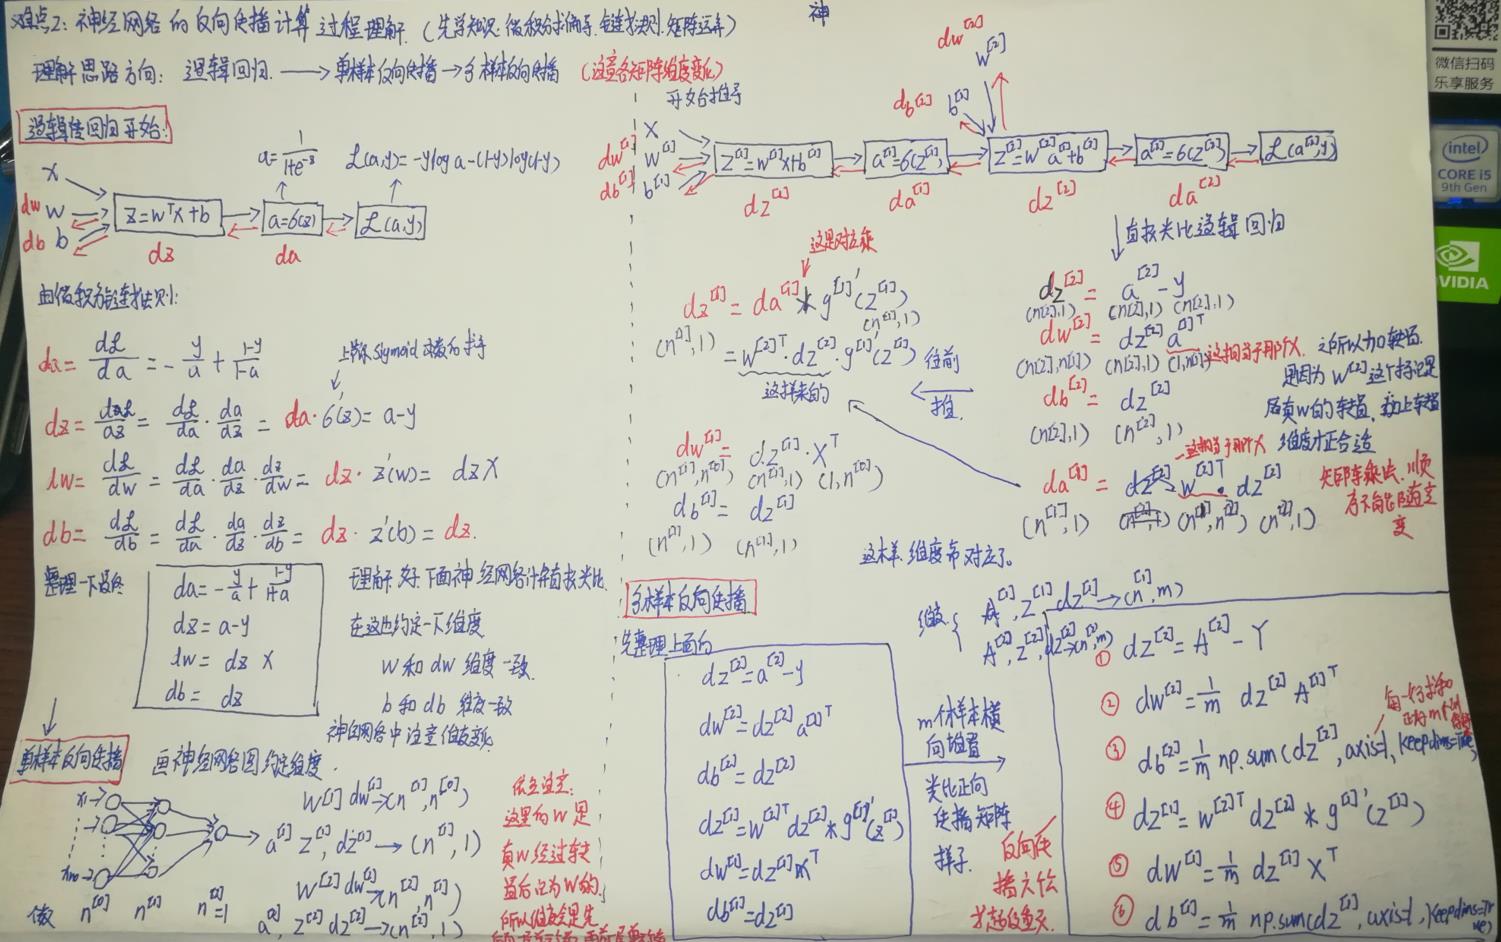 难点2: 神经网络的反向传播计算过程理解. (先学知识: 微积分求偏导, 链式法则, 矩阵运算)
神
理解思路方向: 逻辑回归. → 单样本反向传播 → 多样本反向传播 (注意各矩阵维度变化)
逻辑回归开始:
a = 1/(1+e^-z)
L(a,y) = -y log a - (1-y) log(1-y)
x
dw w
db b
z = w^T x + b
a = σ(z)
L(a,y)
dz
da
由微积分链式法则:
da = dL/da = -y/a + (1-y)/(1-a)
dz = dL/dz = dL/da · da/dz = da · σ'(z) = a-y
dw = dL/dw = dL/da · da/dz · dz/dw = dz · z'(w) = dz x
db = dL/db = dL/da · da/dz · dz/db = dz · z'(b) = dz.
整理一下最终
da = -y/a + (1-y)/(1+a)
dz = a-y
dw = dz x
db = dz
理解好, 下面神经网络计算直接类比
在这也约定一下维度
w 和 dw 维度一致.
b 和 db 维度一致
神经网络中注意维度变化
单样本反向传播
画神经网络图约定维度.
W^[1] dw^[1] → (n^[1], n^[0])
a^[1] z^[1], dz^[1] → (n^[1], 1)
W^[2] dw^[2] → (n^[2], n^[1])
a^[2], z^[2] dz^[2] → (n^[2], 1)
n^[0] n^[1] n^[2]=1
这里的W是
真W经过转
置后记为W的.
开始推导
x
dw^[1] W^[1]
db^[1] b^[1]
z^[1] = w^[1]x + b^[1]
a^[1] = σ(z^[1])
z^[2] = w^[2]a^[1] + b^[2]
a^[2] = σ(z^[2])
L(a^[2], y)
dw^[2]
w^[2]
db^[2] b^[2]
dz^[1]
da^[1]
dz^[2]
da^[2]
直接类比逻辑回归
dz^[2] = a^[2] - y
(n[2],1) (n[2],1) (n[2],1)
dw^[2] = dz^[2] a^[1]T
(n[2],n[1]) (n[2],1) (1,n[1])
这相当于那个x.
之所以加转置.
是因为W^[2]这个标记是
原真w的转置, 加上转置
维度才正合适
db^[2] = dz^[2]
(n[2],1) (n^[2],1)
这相当于那个x
da^[1] = w^[2]T · dz^[2]
(n^[1],1) (n^[1],n^[2]) (n^[2],1)
矩阵乘法, 顺
序不能随意变
往前
推.
这是对应乘
dz^[1] = da^[1] * g^[1]'(z^[1])
(n^[1],1) (n^[1],1)
= w^[2]T · dz^[2] · g^[1]'(z^[1])
这样来的
dw^[1] = dz^[1] · x^T
(n^[1],n^[0]) (n^[1],1) (1,n^[0])
db^[1] = dz^[1]
(n^[1],1) (n^[1],1)
这样, 维度都对应了。
多样本反向传播
先整理上面的
dz^[2] = a^[2] - y
dw^[2] = dz^[2] a^[1]T
db^[2] = dz^[2]
dz^[1] = w^[2]T dz^[2] * g^[1]'(z^[1])
dw^[1] = dz^[1] x^T
db^[1] = dz^[1]
m个样本横
向放置
类比正向
传播矩阵
样子.
反向传
维度{
A^[1], Z^[1] dz^[1] → (n^[1], m)
A^[2], Z^[2], dz^[2] → (n^[2], m)
① dZ^[2] = A^[2] - Y
② dW^[2] = 1/m dZ^[2] A^[1]T
③ db^[2] = 1/m np.sum(dZ^[2], axis=1, keepdims=True)
每一行求和
④ dZ^[1] = W^[2]T dZ^[2] * g^[1]'(Z^[1])
⑤ dW^[1] = 1/m dZ^[1] X^T
⑥ db^[1] = 1/m np.sum(dZ^[1], axis=1, keepdims=True)
微信扫码
乐享服务
intel
CORE i5
9th Gen
NVIDIA